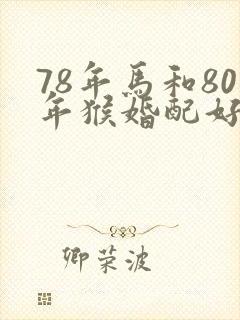 78年馬和80
年猴婚配好
卿荣波